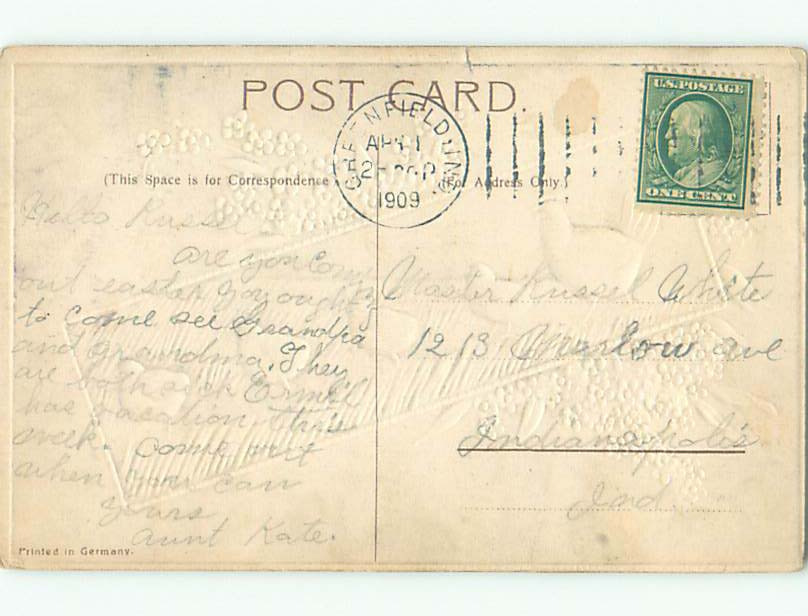 POST CARD.
GREENFIELD, IND.
APR 1
2
1909
U.S. POSTAGE
ONE CENT
(This Space is for Correspondence
(For Address Only.)
Hello Russel
are you coming
out easter you ought
to come see Grandpa
and grandma. They
are both sick Ermil
has vacation this
week. come out
when you can
yours
aunt Kate.
Master Russel White
1213 ave
Indianapolis
Ind.
Printed in Germany.